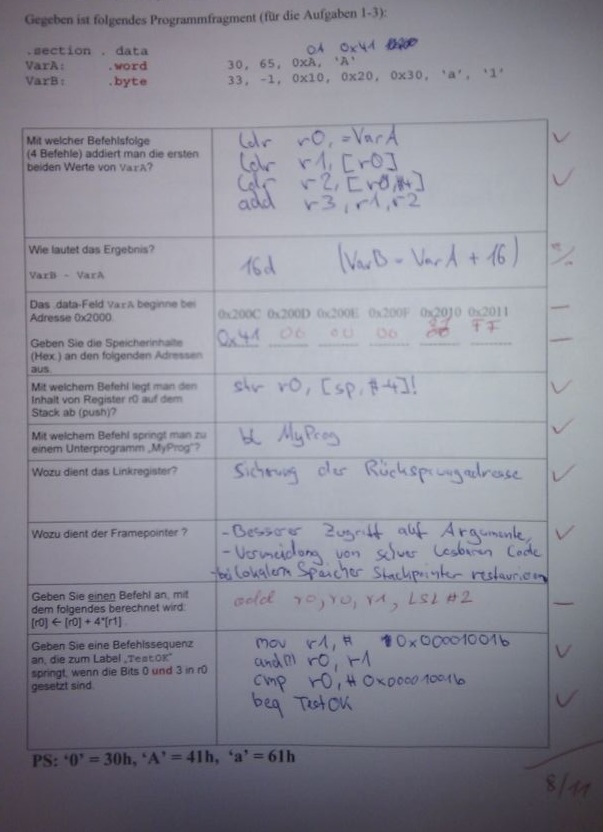 Gegeben ist folgendes Programmfragment (für die Aufgaben 1-3):
01 0x41
.section . data
VarA: .word 30, 65, 0xA, 'A'
VarB: .byte 33, -1, 0x10, 0x20, 0x30, 'a', '1'
Mit welcher Befehlsfolge
(4 Befehle) addiert man die ersten
beiden Werte von VarA?
ldr r0, =VarA
ldr r1, [r0]
ldr r2, [r0,#4]
add r3, r1, r2
Wie lautet das Ergebnis?
VarB - VarA
16d (VarB = VarA + 16)
Das .data-Feld VarA beginne bei
Adresse 0x2000.
Geben Sie die Speicherinhalte
(Hex.) an den folgenden Adressen
aus.
0x200C 0x200D 0x200E 0x200F 0x2010 0x2011
0x41 00 00 00 FF
Mit welchem Befehl legt man den
Inhalt von Register r0 auf dem
Stack ab (push)?
str r0, [sp, #-4]!
Mit welchem Befehl springt man zu
einem Unterprogramm „MyProg"?
bl MyProg
Wozu dient das Linkregister?
Sicherung der Rücksprungadresse
Wozu dient der Framepointer ?
- Besserer Zugriff auf Argumente,
- Vermeidung von schwer lesbaren Code
- bei lokalem Speicher Stackpointer restaurieren
Geben Sie einen Befehl an, mit
dem folgendes berechnet wird:
[r0] ← [r0] + 4*[r1] .
add r0, r0, r1, LSL #2
Geben Sie eine Befehlssequenz
an, die zum Label „TestOK"
springt, wenn die Bits 0 und 3 in r0
gesetzt sind.
mov r1, # 0x00001001b
and r0, r1
cmp r0, # 0x00001001b
beq TestOK
PS: '0' = 30h, 'A' = 41h, 'a' = 61h
8/11